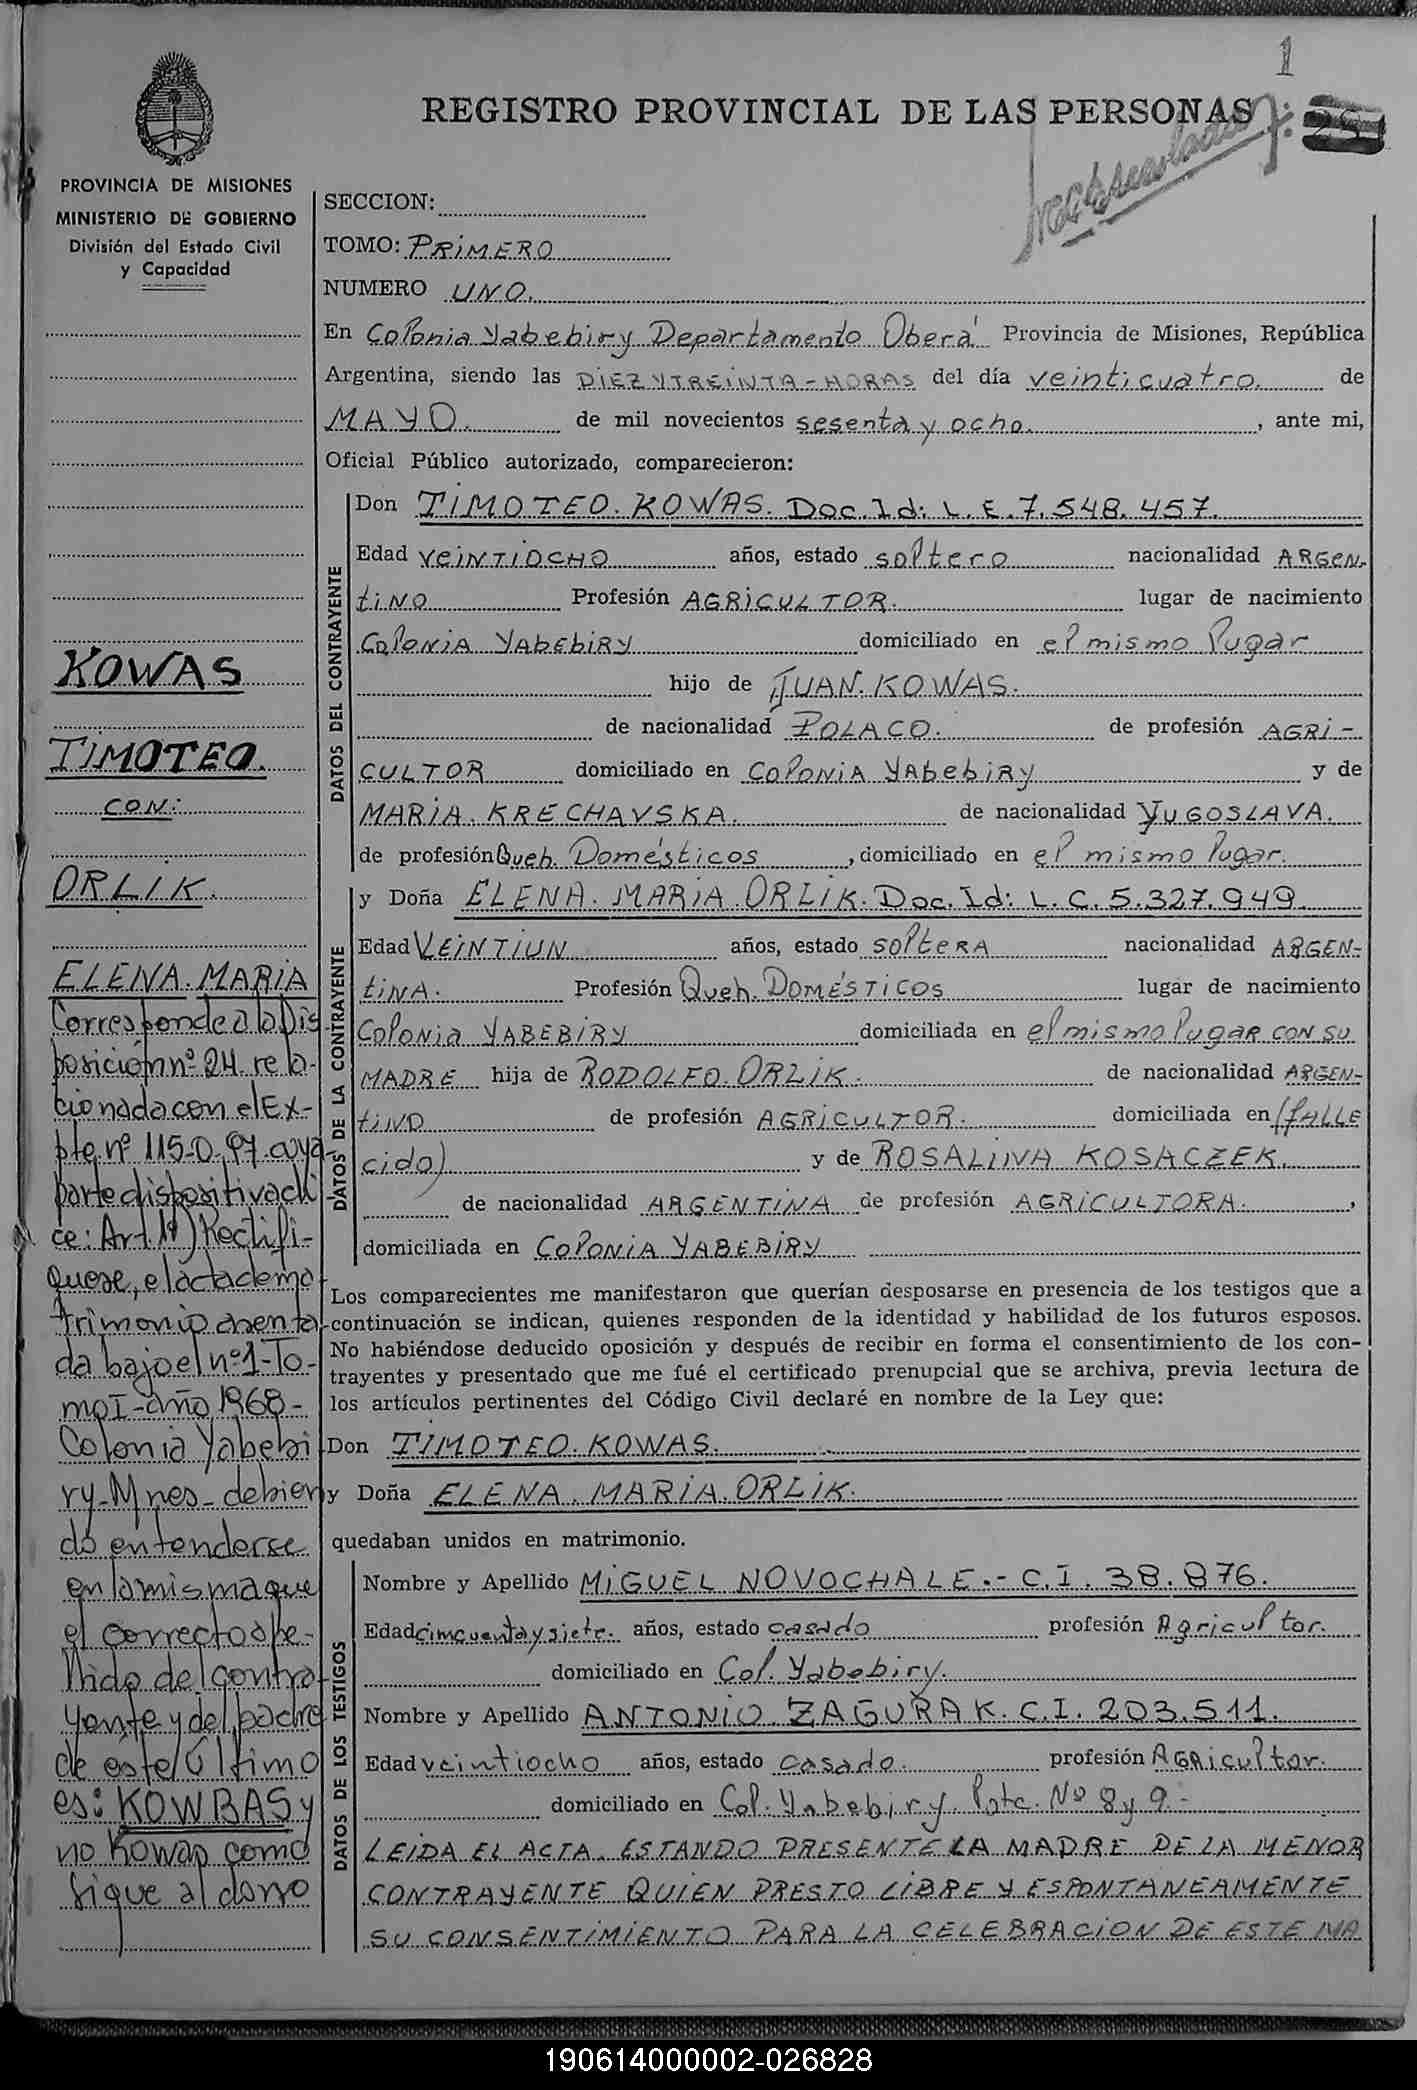 1
REGISTRO PROVINCIAL DE LAS PERSONAS
PROVINCIA DE MISIONES
MINISTERIO DE GOBIERNO
División del Estado Civil
y Capacidad
KOWAS
TIMOTEO.
CON:
ORLIK.
ELENA. MARIA
Corresponde a la Dis
posición nº 24 rela-
cionada con el Ex-
pte. nº 115-0-97 cuya
parte dispositiva di
ce: Art. 1º) Rectifi-
quese, el acta de ma
trimonio asenta
da bajo el nº 1-To-
mo I-año 1968-
Colonia Yabebi
ry-Mnes- debien
do entenderse
en la misma que
el correcto ape-
llido del contra
yente y del padre
de éste último
es: KOWBAS y
no Kowas como
sigue al dorso
SECCION:
TOMO: PRIMERO
NUMERO UNO.
En Colonia Yabebiry Departamento Oberá Provincia de Misiones, República
Argentina, siendo las DIEZ Y TREINTA - HORAS del día veinticuatro de
MAYO. de mil novecientos sesenta y ocho. , ante mi,
Oficial Público autorizado, comparecieron:
DATOS DEL CONTRAYENTE
Don TIMOTEO. KOWAS. Doc. Id: L. E. 7. 548. 457.
Edad VEINTIOCHO años, estado soltero nacionalidad ARGEN-
tiNO Profesión AGRICULTOR. lugar de nacimiento
Colonia YAbEbiRY domiciliado en el mismo lugar
hijo de JUAN. KOWAS.
de nacionalidad POLACO. de profesión AGRI-
CULTOR domiciliado en Colonia YAbebiRy y de
MARIA. KRECHAVSKA. de nacionalidad YUGOSLAVA.
de profesión Queh. Domésticos , domiciliado en el mismo lugar.
DATOS DE LA CONTRAYENTE
y Doña ELENA. MARIA. ORLIK. Doc. Id: L. C. 5. 327. 949
Edad VEINTIUN años, estado soltERA nacionalidad ARGEN-
tiNA. Profesión Queh. DOMÉSTICOS lugar de nacimiento
Colonia YABEBIRY domiciliada en el mismo lugar CON SU
MADRE hija de RODOLFO. ORLIK. de nacionalidad ARGEN-
tiNO de profesión AGRICULTOR. domiciliada en (fALLE
cido) y de ROSALINA KOSACZEK.
de nacionalidad ARGENTINA de profesión AGRICULTORA. ,
domiciliada en Colonia YABEBIRY
Los comparecientes me manifestaron que querían desposarse en presencia de los testigos que a
continuación se indican, quienes responden de la identidad y habilidad de los futuros esposos.
No habiéndose deducido oposición y después de recibir en forma el consentimiento de los con-
trayentes y presentado que me fué el certificado prenupcial que se archiva, previa lectura de
los artículos pertinentes del Código Civil declaré en nombre de la Ley que:
Don TIMOTEO. KOWAS.
y Doña ELENA. MARIA. ORLIK.
quedaban unidos en matrimonio.
DATOS DE LOS TESTIGOS
Nombre y Apellido MIGUEL NOVOCHALE.- C. I. 38. 876.
Edad cimcuenta y siete. años, estado casado profesión Agricultor.
domiciliado en Col. Yabebiry.
Nombre y Apellido ANTONIO ZAGURAK. C. I. 203. 511.
Edad veintiocho años, estado casado. profesión AGRicultor.
domiciliado en Col. Yabebiry. Lote. Nº 8 y 9.-
LEIDA EL ACTA. ESTANDO PRESENTE LA MADRE DE LA MENOR
CONTRAYENTE QUIEN PRESTO LIBRE Y ESPONTANEAMENTE
SU CONSENTIMIENTO PARA LA CELEBRACION DE ESTE MA
190614000002-026828